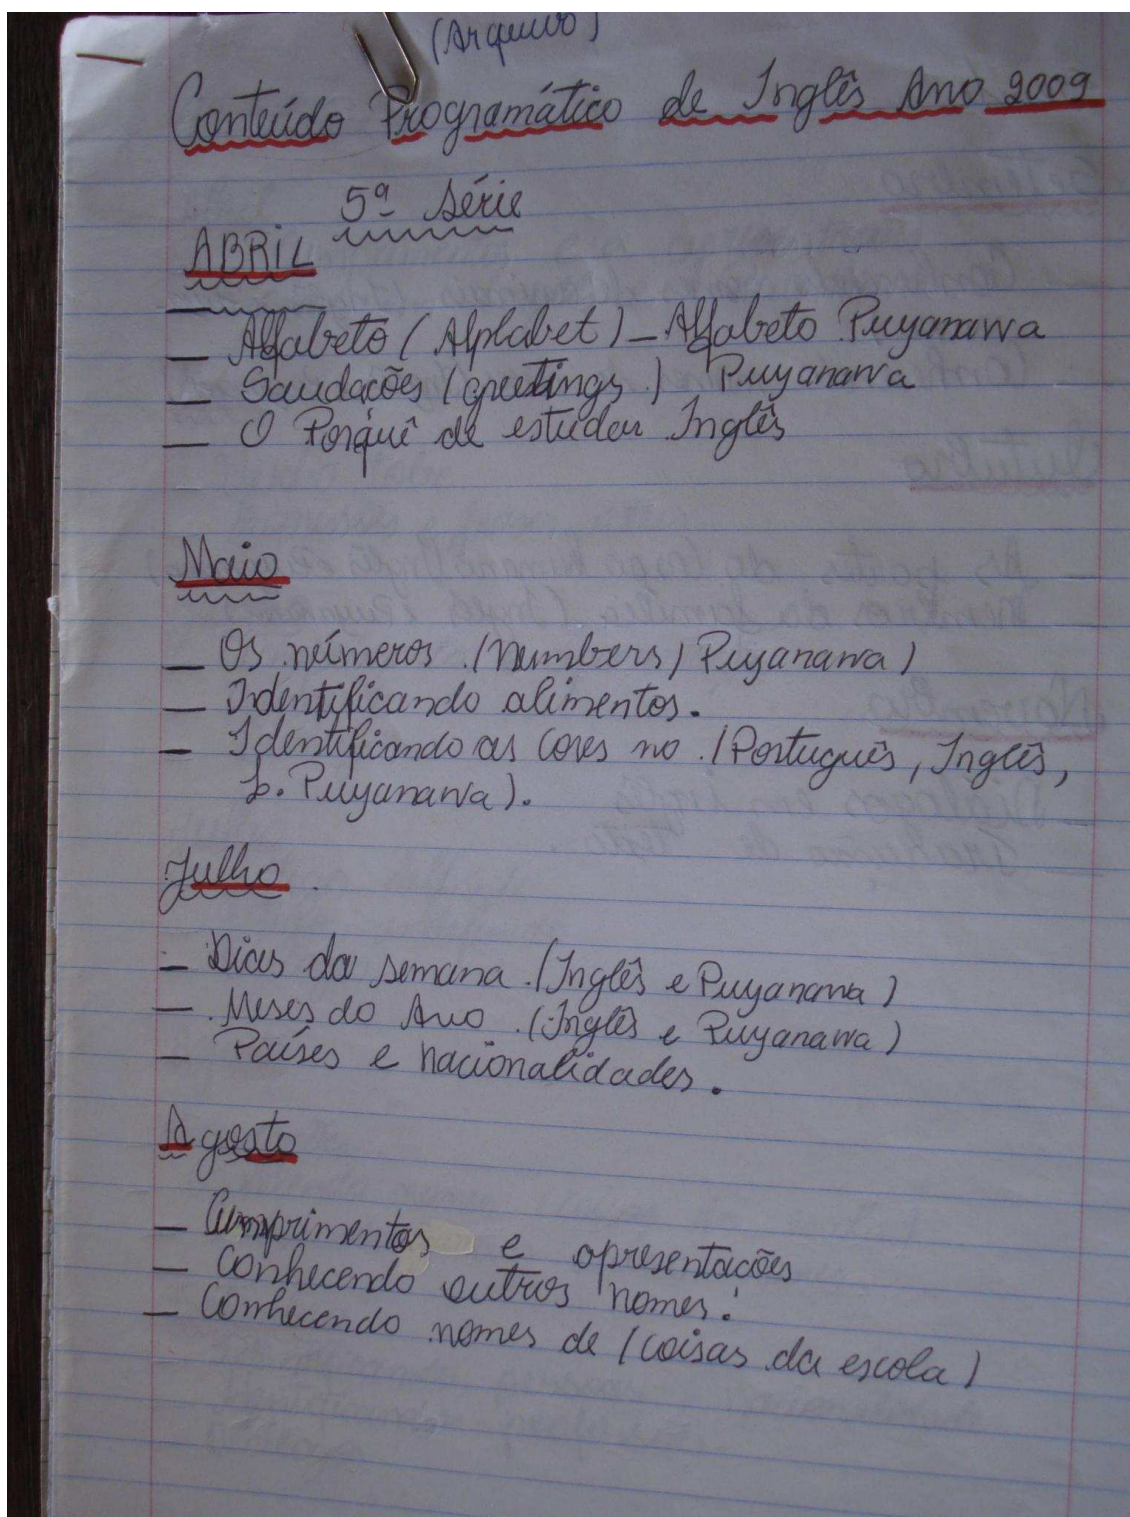 (Arquivo)
Conteúdo Programático de Inglês Ano 2009
5ª série
ABRIL
— Alfabeto (Alphabet) – Alfabeto Puyanawa
— Saudações (greetings) Puyanawa
— O Porquê de estudar Inglês
Maio
— Os números. (numbers) Puyanawa)
— Identificando alimentos.
— Identificando as cores no. (Português, Inglês,
L. Puyanawa).
Julho
— Dias da semana. (Inglês e Puyanawa)
— Meses do Ano. (Inglês e Puyanawa)
— Países e nacionalidades.
Agosto
— Cumprimentos e apresentações
— Conhecendo outros nomes.
— Conhecendo nomes de (coisas da escola)